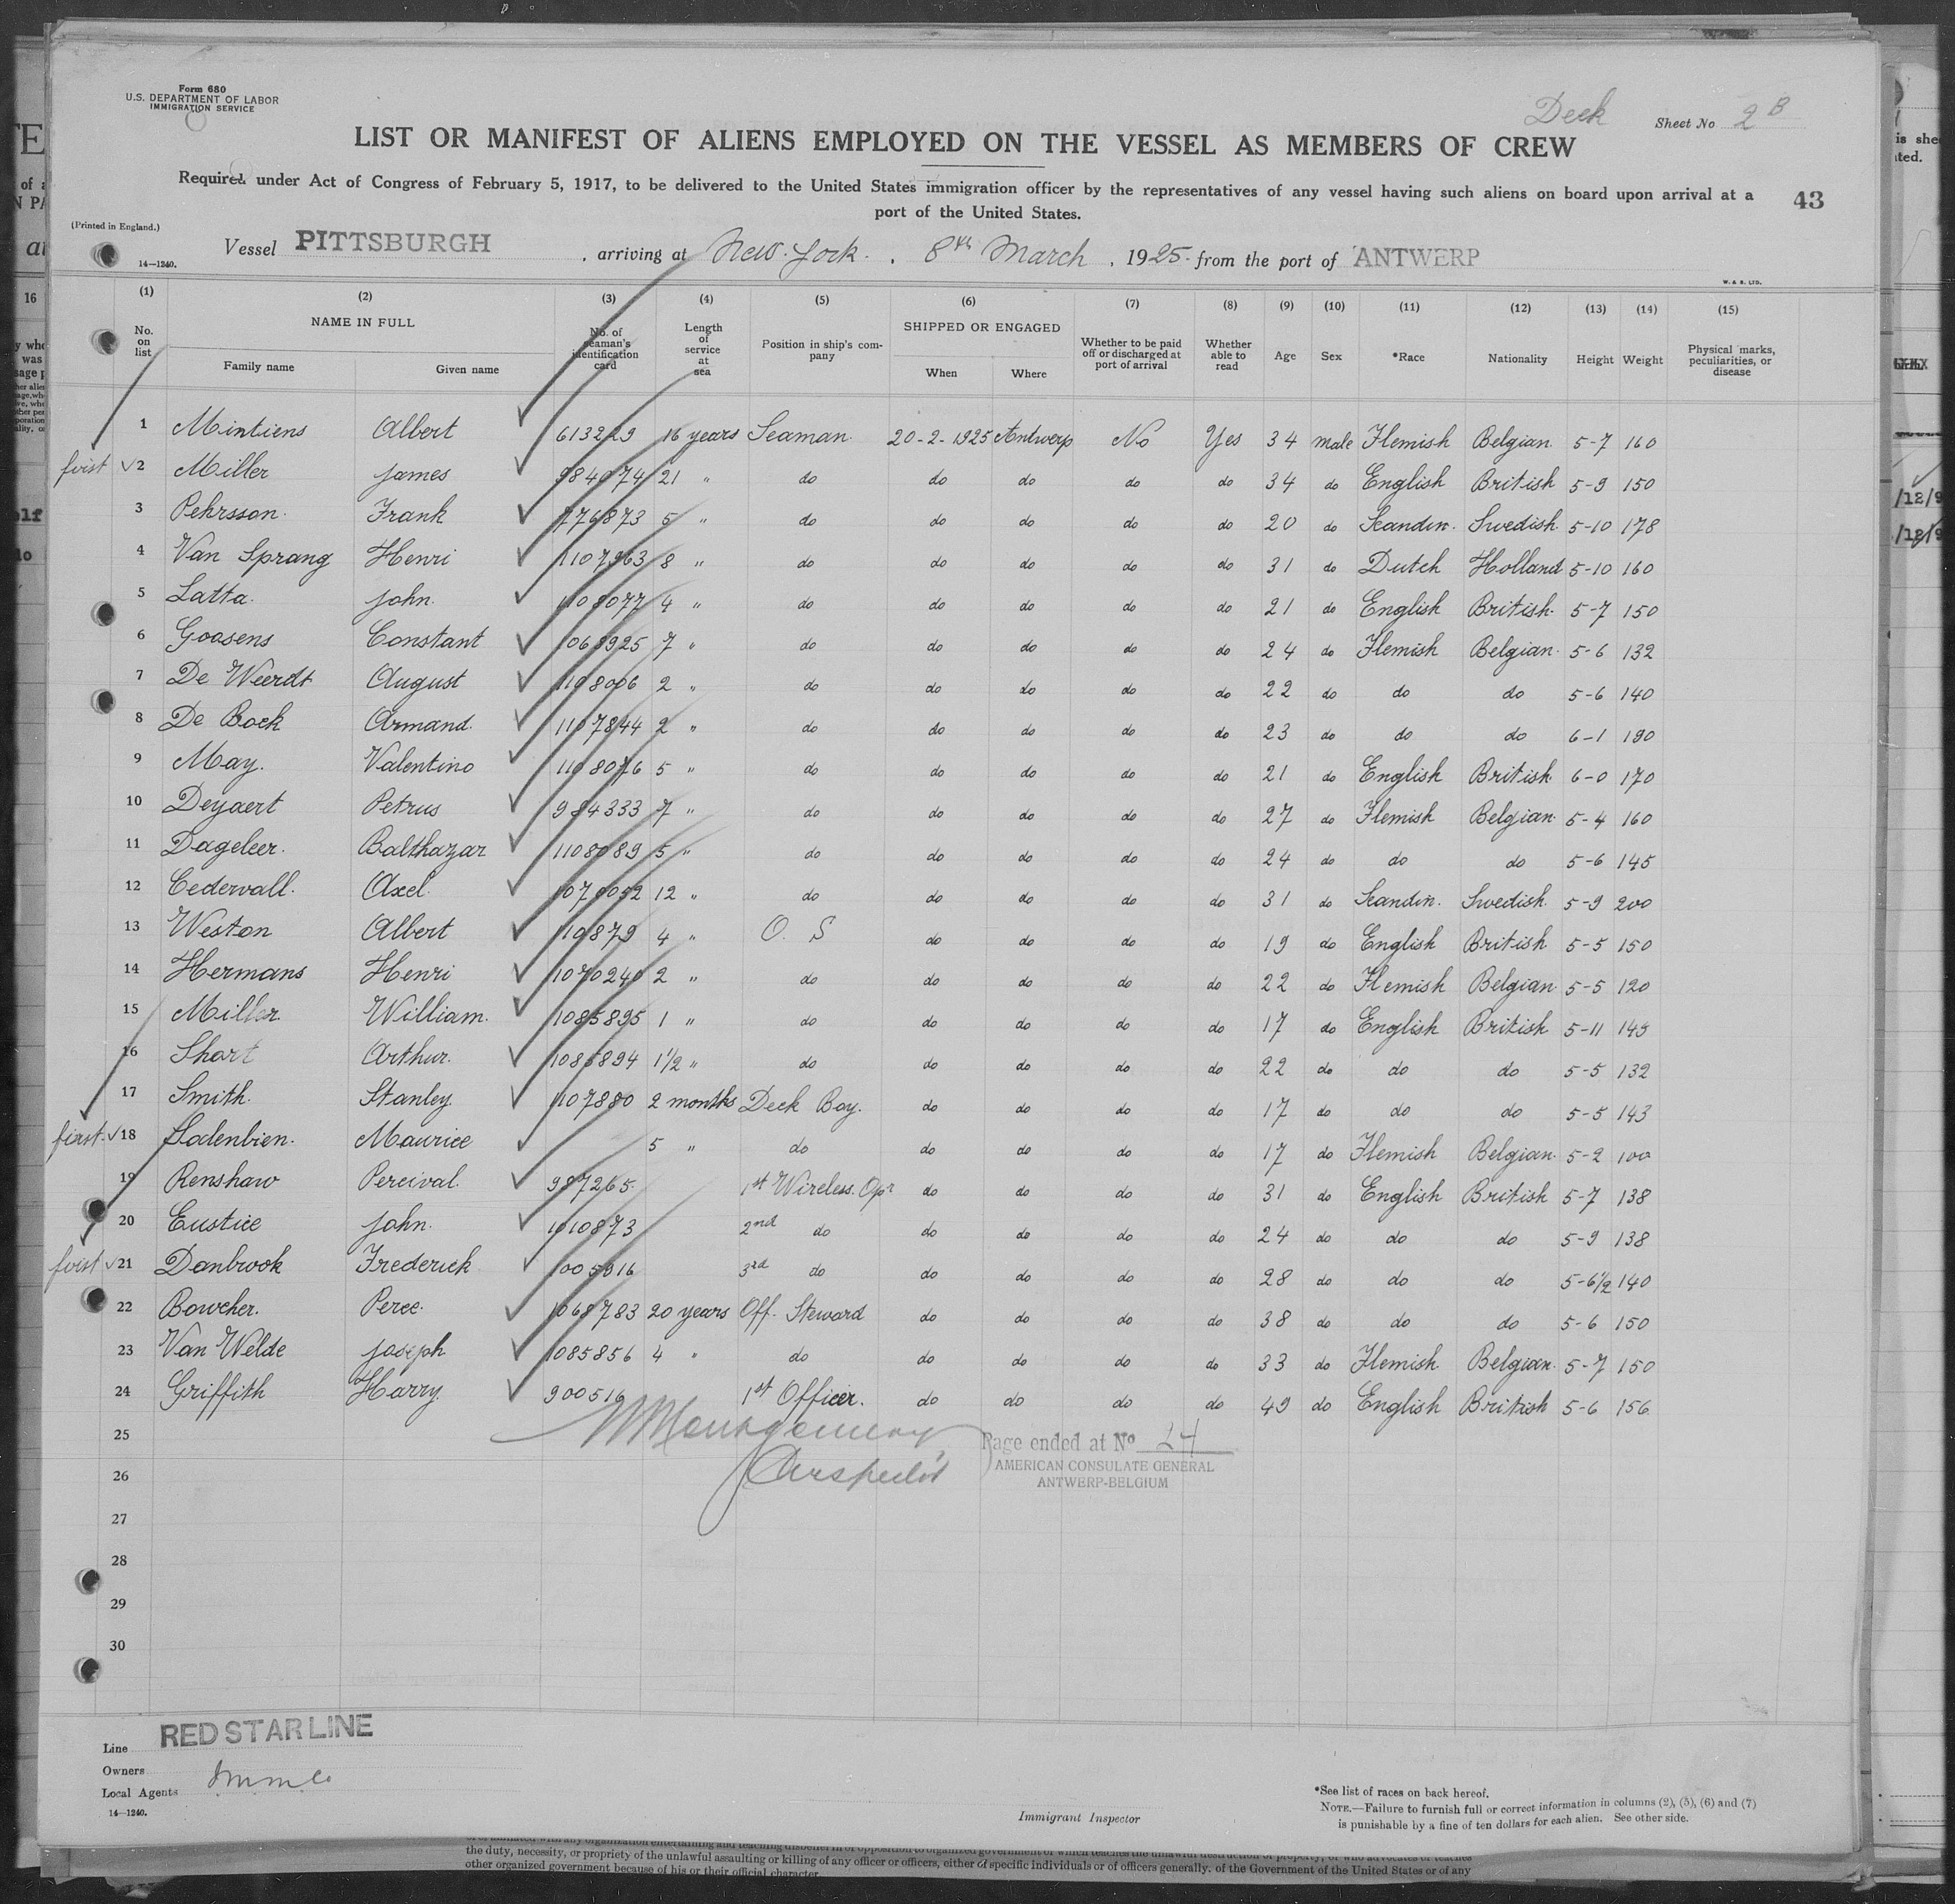 Form 680
U.S. DEPARTMENT OF LABOR
IMMIGRATION SERVICE
Deck Sheet No 2 B
LIST OR MANIFEST OF ALIENS EMPLOYED ON THE VESSEL AS MEMBERS OF CREW
Required under Act of Congress of February 5, 1917, to be delivered to the United States immigration officer by the representatives of any vessel having such aliens on board upon arrival at a
port of the United States.
43
(Printed in England.)
Vessel PITTSBURGH , arriving at New York. , 8th March , 1925 from the port of ANTWERP
14—1240.
W. & S. LTD.
(1) (2) (3) (4) (5) (6) (7) (8) (9) (10) (11) (12) (13) (14) (15)
No. on list NAME IN FULL Family name Given name No. of seaman's identification card Length of service at sea Position in ship's company SHIPPED OR ENGAGED When Where Whether to be paid off or discharged at port of arrival Whether able to read Age Sex *Race Nationality Height Weight Physical marks, peculiarities, or disease
1 Mintiens Albert 613229 16 years Seaman 20-2-1925 Antwerp No Yes 34 male Flemish Belgian 5-7 160
first √2 Miller James 984074 21 " do do do do do 34 do English British 5-9 150
3 Pehrsson Frank 776873 5 " do do do do do 20 do Scandin. Swedish 5-10 178
4 Van Sprang Henri 1107963 8 " do do do do do 31 do Dutch Holland 5-10 160
5 Latta John 1108077 4 " do do do do do 21 do English British 5-7 150
6 Goosens Constant 1068925 7 " do do do do do 24 do Flemish Belgian 5-6 132
7 De Weerdt August 1108006 2 " do do do do do 22 do do do 5-6 140
8 De Bock Armand 1107844 2 " do do do do do 23 do do do 6-1 190
9 May Valentino 1108076 5 " do do do do do 21 do English British 6-0 170
10 Deyaert Petrus 984333 7 " do do do do do 27 do Flemish Belgian 5-4 160
11 Dageleer Balthazar 1108089 5 " do do do do do 24 do do do 5-6 145
12 Cedervall Axel 1070052 12 " do do do do do 31 do Scandin. Swedish 5-9 200
13 Weston Albert 110879 4 " O. S do do do do 19 do English British 5-5 150
14 Hermans Henri 1070240 2 " do do do do do 22 do Flemish Belgian 5-5 120
15 Miller William 1085895 1 " do do do do do 17 do English British 5-11 149
16 Short Arthur 1085894 1 1/2 " do do do do do 22 do do do 5-5 132
17 Smith Stanley 1107880 2 months Deck Boy do do do do 17 do do do 5-5 143
first √18 Lodenbien Maurice 5 " do do do do do 17 do Flemish Belgian 5-2 100
19 Renshaw Percival 987265 1st Wireless Opr do do do do 31 do English British 5-7 138
20 Eustice John 1010873 2nd do do do do do 24 do do do 5-9 138
first √21 Danbrook Frederick 1005916 3rd do do do do do 28 do do do 5-6 1/2 140
22 Bowcher Perce 1068783 20 years Off. Steward do do do do 38 do do do 5-6 150
23 Van Welde Joseph 1085856 4 " do do do do do 33 do Flemish Belgian 5-7 150
24 Griffith Harry 900516 1st Officer do do do do 49 do English British 5-6 156
25
Page ended at No 24
26
AMERICAN CONSULATE GENERAL
ANTWERP-BELGIUM
27
28
29
30
Line RED STAR LINE
Owners
Local Agents
14—1240.
Immigrant Inspector
*See list of races on back hereof.
NOTE.—Failure to furnish full or correct information in columns (2), (5), (6) and (7)
is punishable by a fine of ten dollars for each alien. See other side.
the duty, necessity, or propriety of the unlawful assaulting or killing of any officer or officers, either of specific individuals or of officers generally, of the Government of the United States or of any
other organized government because of his or their official character